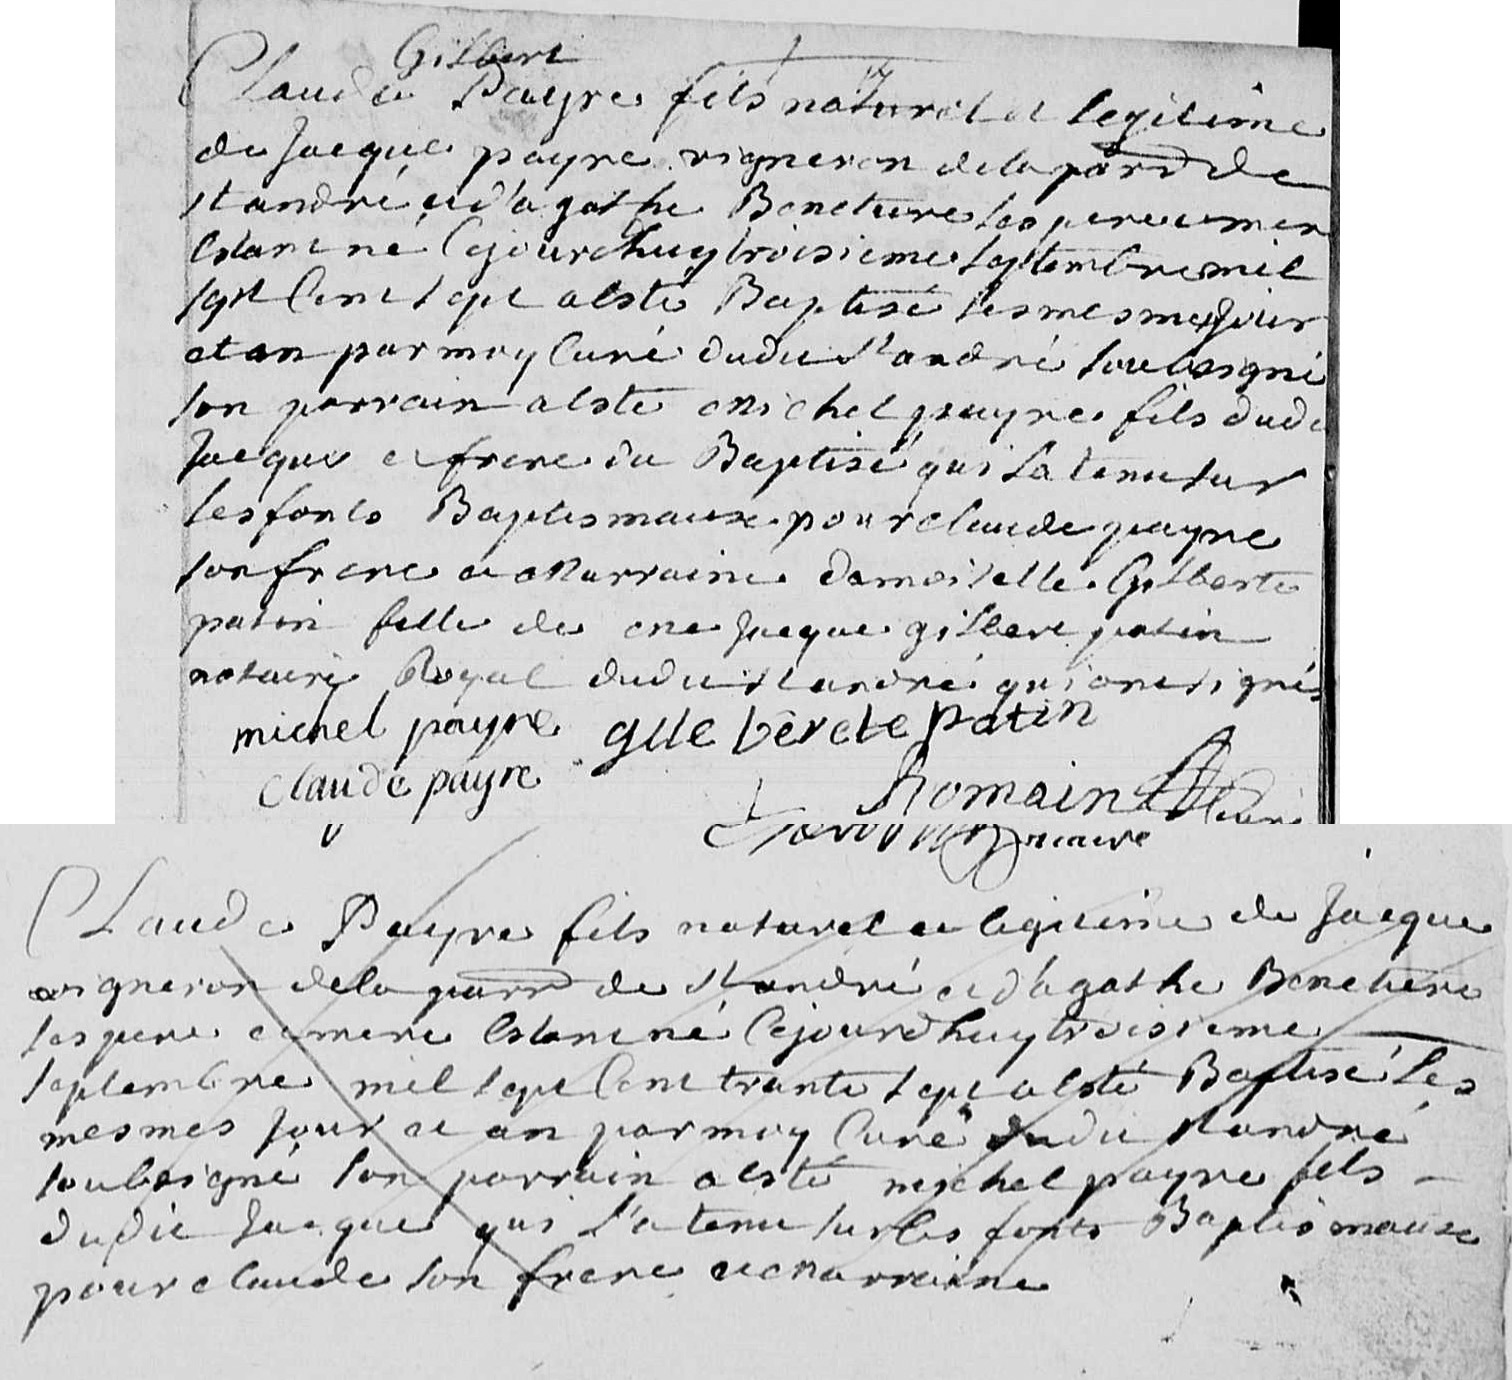 Gilbert
Claude Payre fils naturel et legitime
de Jacque payre vigneron de la parr de
st andré et d'agathe Benetiere ses pere et mere
Estant né Cejourdhuy troisieme septembre mil
sept Cent sept a esté Baptisé les mesme Jour
et an par moy Curé dudit st andré soubsigné
son parrain a esté Michel payre fils dudi
Jacque et frere du Baptisé qui La tenu sur
les fonts Baptismaux pour claude payre
son frere et Marraine damoiselle Gilberte
patin fille de me Jacque gilbert patin
notaire Royal dudit st andré qui ont signés
michel payre gilebèrete patin
claude payre
Romain Curé
Claude Payre fils naturel et legitime de Jacque
vigneron de la parr de st andré et d'agathe Benetiere
ses pere et mere Estant né Cejourdhuy troisieme
septembre mil sept Cent trante sept a esté Baptisé Les
mesmes Jour et an par moy Curé dudit st andré
soubsigné son parrain a esté michel payre fils
dudit Jacque qui L'a tenu sur les fonts Baptismaux
pour claude son frere et marraine